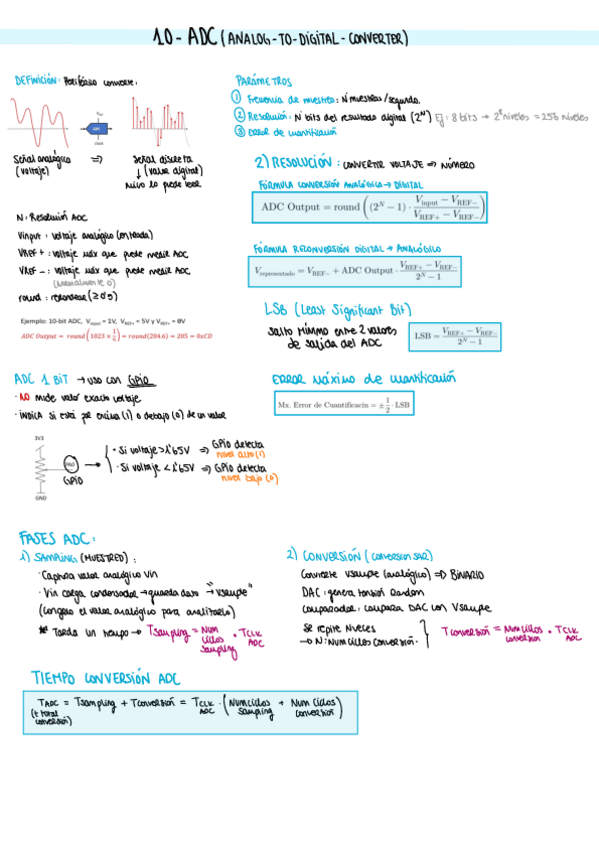 10 - ADC (ANALOG-TO-DIGITAL-CONVERTER)
DEFINICIÓN: Periférico convierte.
Señal analógica ⇒ Señal discreta
(voltaje) ↓ (valor digital)
micro lo puede leer
N: Resolución ADC
Vinput: voltaje analógico (entrada)
VREF+: voltaje máx que puede medir ADC
VREF-: voltaje máx que puede medir ADC
(normalmente 0)
round: redondear (≥0'5)
Ejemplo: 10-bit ADC, V_input = 1V, V_REF+ = 5V y V_REF- = 0V
ADC Output = round(1023 × 1/5) = round(204.6) = 205 = 0xCD
PARÁMETROS
① Frecuencia de muestreo: Nº muestras/segundo.
② Resolución: Nº bits del resultado digital (2^N) Ej: 8 bits → 2^8 niveles = 256 niveles
③ Error de cuantificación
2) RESOLUCIÓN: CONVERTIR VOLTAJE ⇒ NÚMERO
FÓRMULA CONVERSIÓN ANALÓGICA → DIGITAL
ADC Output = round((2^N − 1) · (V_input − V_REF−)/(V_REF+ − V_REF−))
FÓRMULA RECONVERSIÓN DIGITAL → ANALÓGICO
V_representado = V_REF− + ADC Output · (V_REF+ − V_REF−)/(2^N − 1)
LSB (Least Significant Bit)
salto mínimo entre 2 valores
de salida del ADC
LSB = (V_REF+ − V_REF−)/(2^N − 1)
ERROR Máximo de cuantificación
Mx. Error de Cuantificacin = ± 1/2 · LSB
ADC 1 BIT → uso con GPIO
· NO mide valor exacto voltaje
· INDICA si está por encima (1) o debajo (0) de un valor
3V3
GPIO
GND
· Si voltaje > 1'65V ⇒ GPIO detecta
nivel alto (1)
· Si voltaje < 1'65V ⇒ GPIO detecta
nivel bajo (0)
FASES ADC:
1) SAMPLING (MUESTREO):
· Captura valor analógico Vin
· Vin carga condensador → guarda dato → "Vsample"
(congela el valor analógico para analizarlo)
* Tarda un tiempo → Tsampling = Num ciclos sampling · TCLK ADC
2) CONVERSIÓN (CONVERSION SAR)
Convierte Vsample (analógico) ⇒ BINARIO
DAC: genera tensión Random
comparador: compara DAC con Vsample
Se repite N veces
→ N: Num ciclos conversión.
Tconversión = Num ciclos conversión · TCLK ADC
TIEMPO CONVERSIÓN ADC
TADC = Tsampling + Tconversión = TCLK ADC · (Num ciclos sampling + Num ciclos conversión)
(t total conversión)